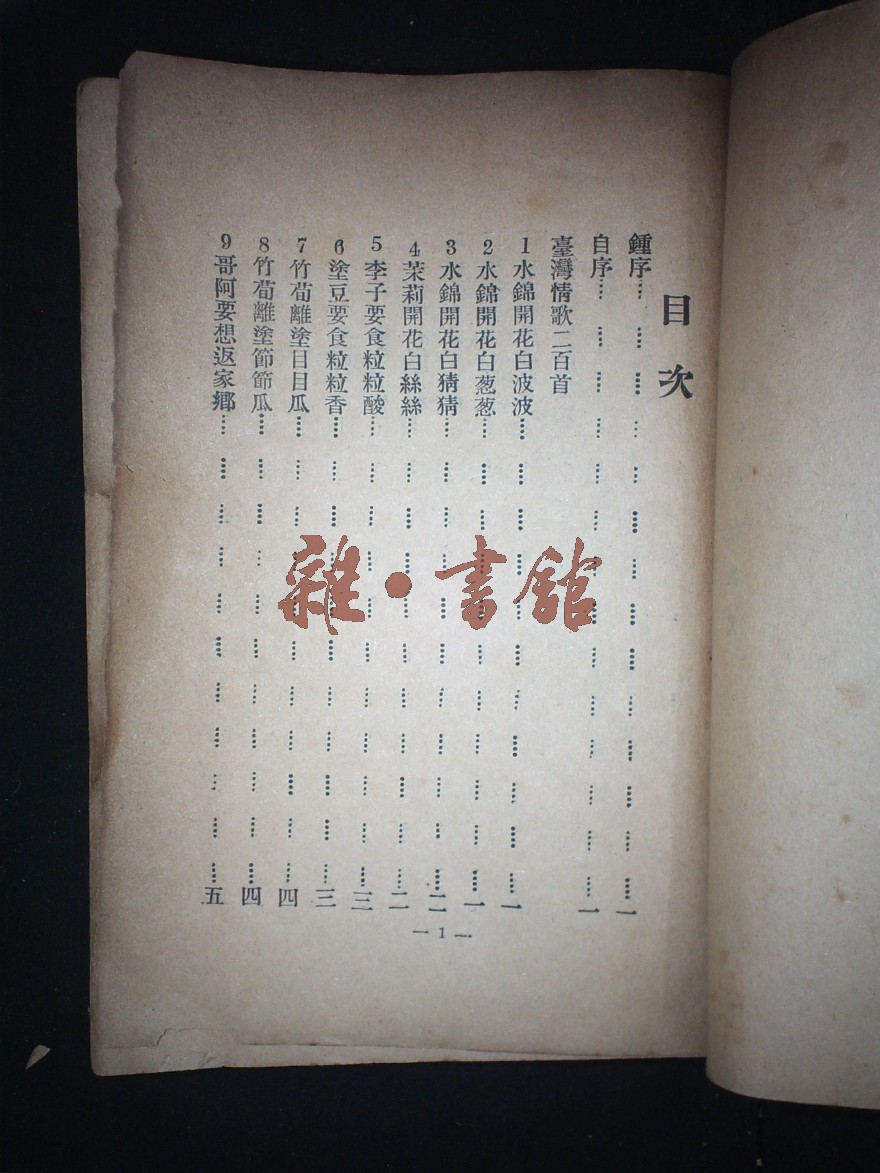 目次
鍾序…………一
自序…………一
臺灣情歌二百首
1 水錦開花白波波…………一
2 水錦開花白葱葱…………一
3 水錦開花白猜猜…………二
4 茉莉開花白絲絲…………二
5 李子要食粒粒酸…………三
6 塗豆要食粒粒香…………三
7 竹荀離塗目目瓜…………四
8 竹荀離塗節節瓜…………四
9 哥阿要想返家鄉…………五
— 1 —
雜·書舘